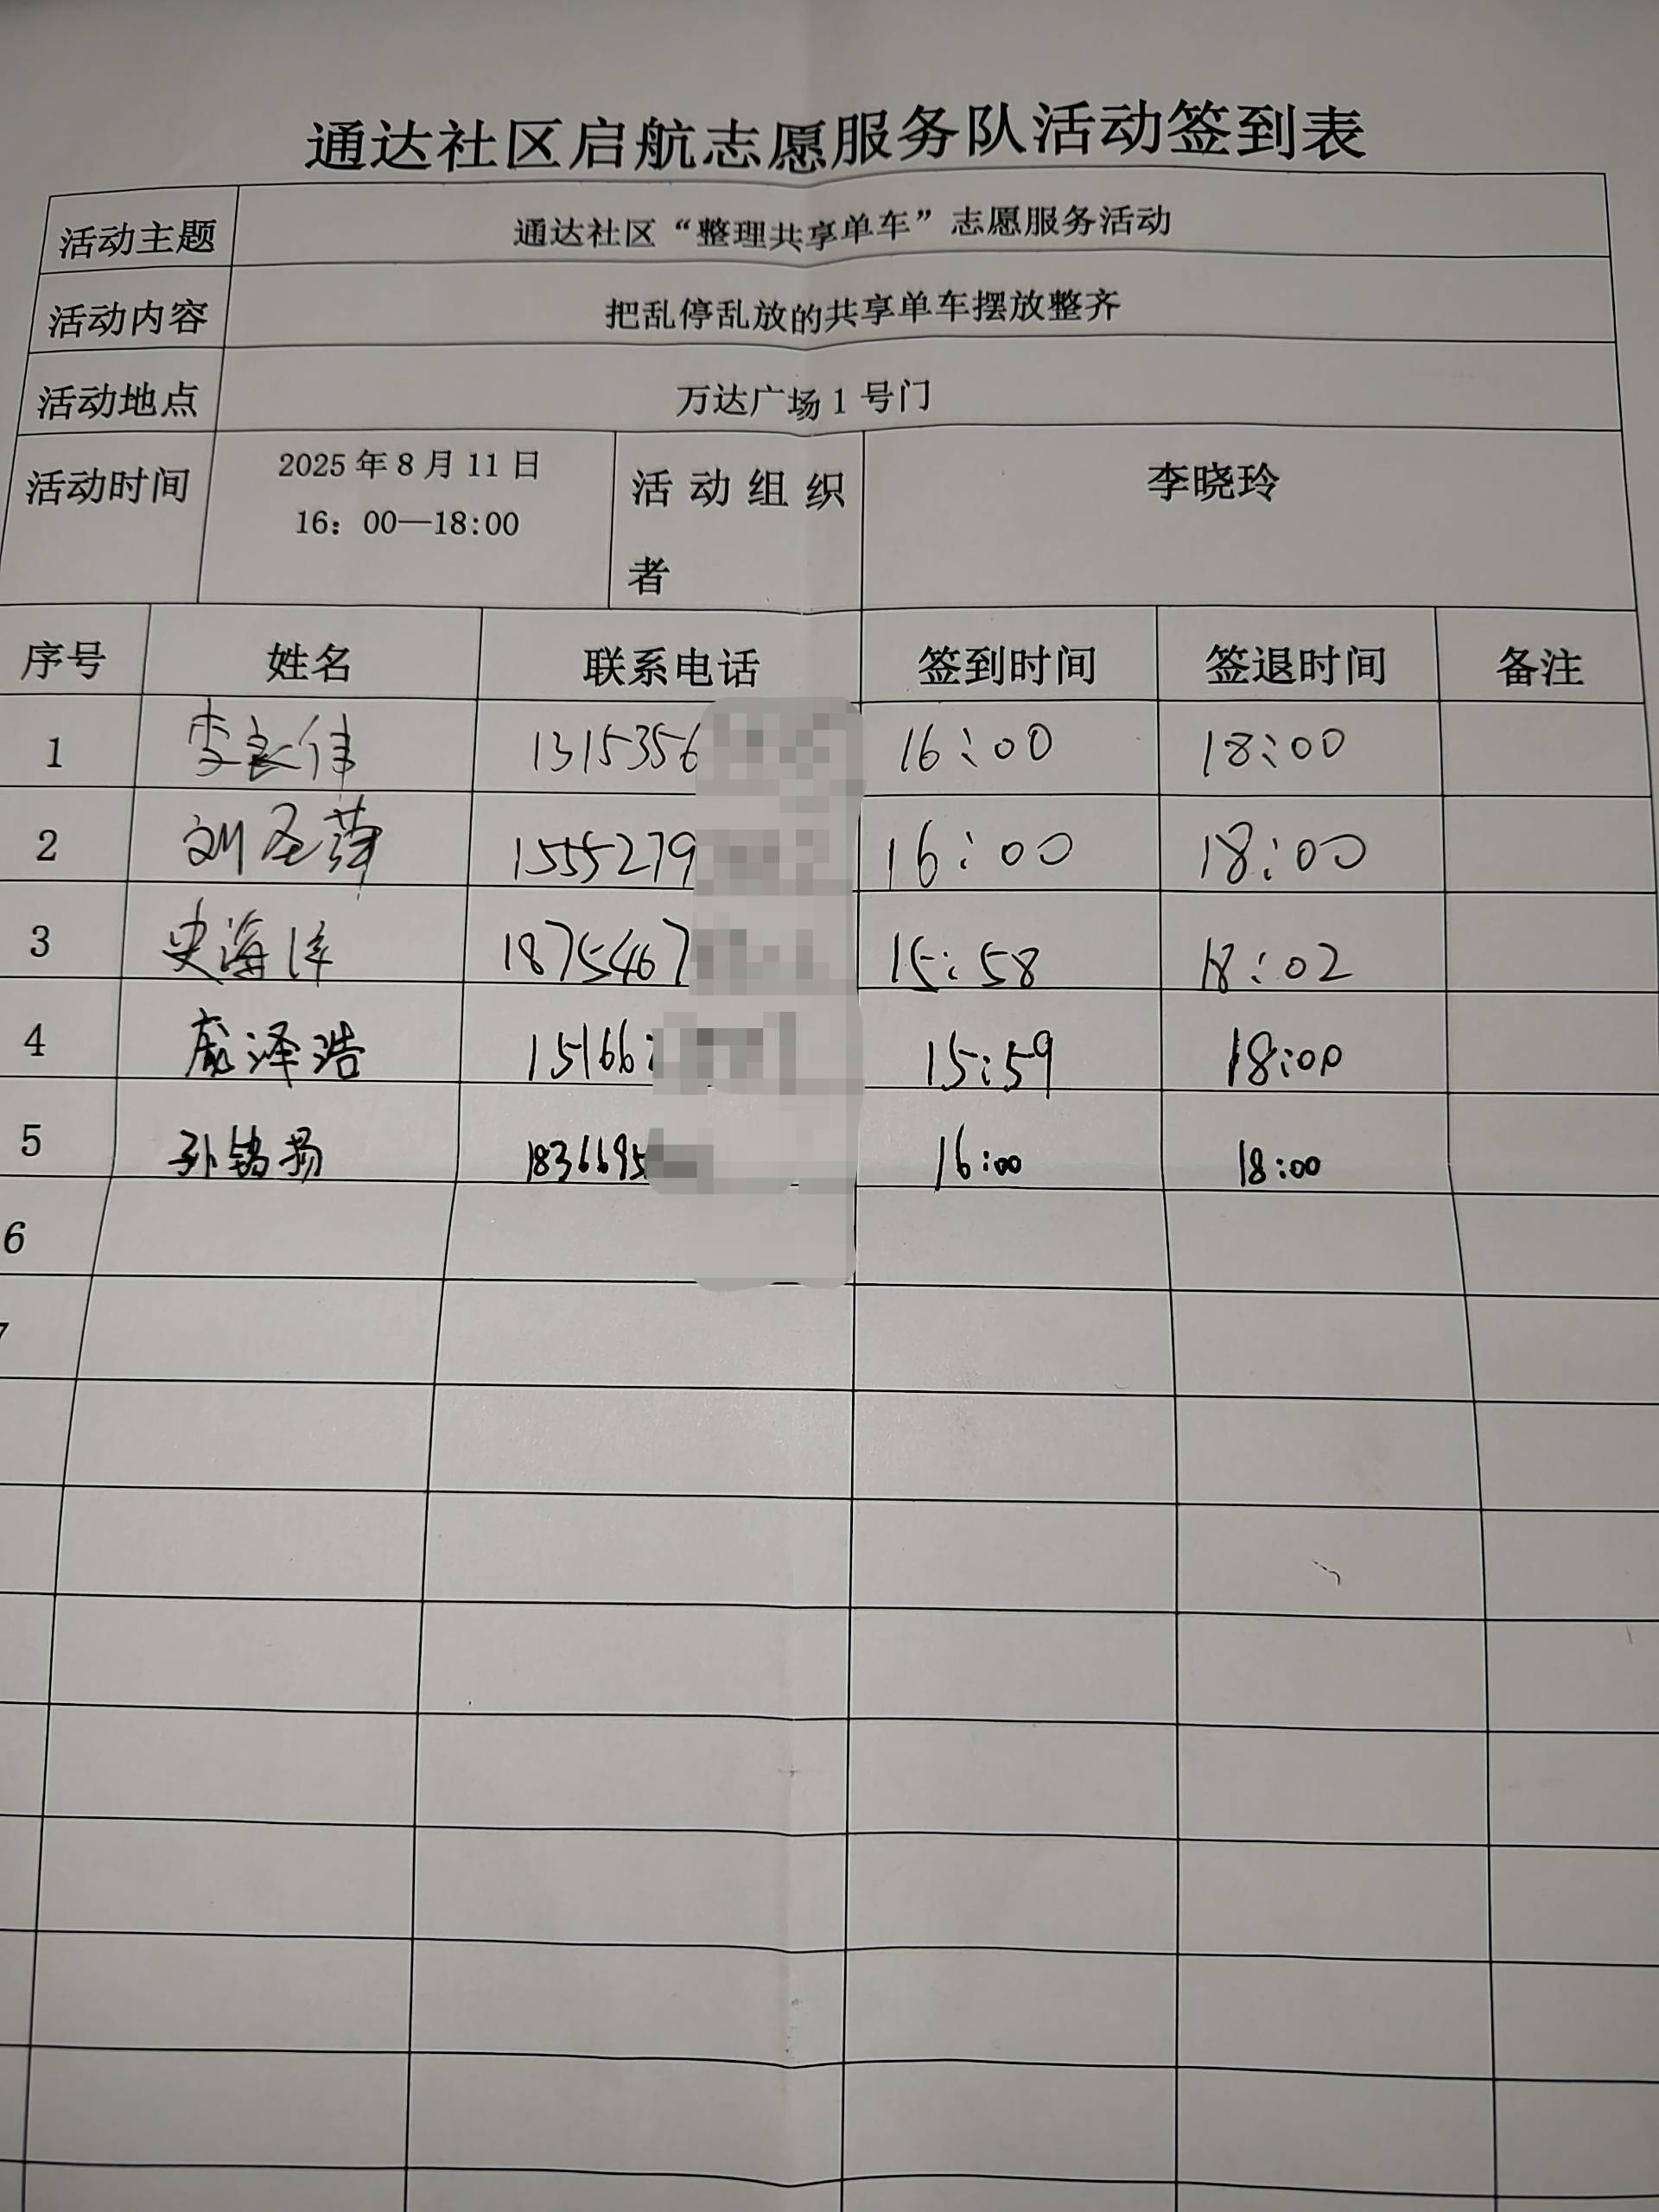 通达社区启航志愿服务队活动签到表
活动主题 通达社区“整理共享单车”志愿服务活动
活动内容 把乱停乱放的共享单车摆放整齐
活动地点 万达广场1号门
活动时间 2025年8月11日 16：00—18:00 活动组织者 李晓玲
序号 姓名 联系电话 签到时间 签退时间 备注
1 李良伟 1315356 16:00 18:00
2 刘圣萍 1555279 16:00 18:00
3 史海洋 1875467 15:58 18:02
4 庞泽浩 15166 15:59 18:00
5 孙锦扬 1836695 16:00 18:00
6
7